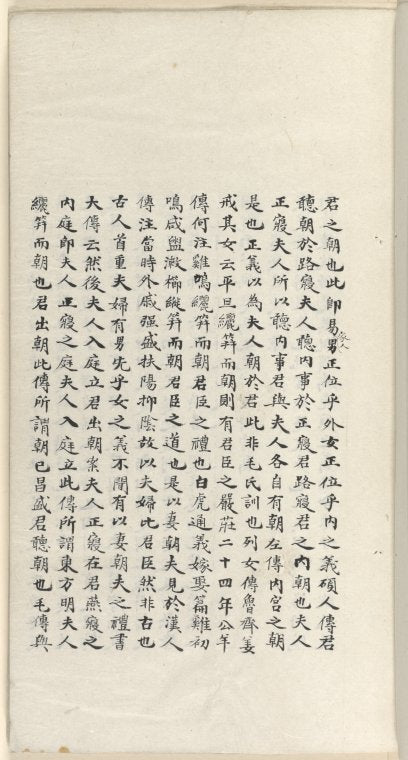 君之朝也此即易家人男正位乎外女正位乎內之義碩人傳君
聽朝於路寢夫人聽內事於正寢君路寢君之內朝也夫人
正寢夫人所以聽內事君與夫人各自有朝左傳內宮之朝
是也正義以為夫人朝於君此非毛氏訓也列女傳魯齊姜
戒其女云平旦纚筓而朝則有君臣之嚴莊二十四年公羊
傳何注雞鳴纚筓而朝君臣之禮也白虎通義嫁娶篇雞初
鳴咸盥漱櫛縰筓而朝君臣之道也是以妻朝夫見於漢人
傳注當時外戚强盛扶陽抑陰故以夫婦比君臣然非古也
古人首重夫婦有男先乎女之義不聞有以妻朝夫之禮書
大傳云然後夫人入庭立君出朝案夫人正寢在君燕寢之
內庭即夫人正寢之庭夫人入庭立此傳所謂東方明夫人
纚筓而朝也君出朝此傳所謂朝已昌盛君聽朝也毛傳與